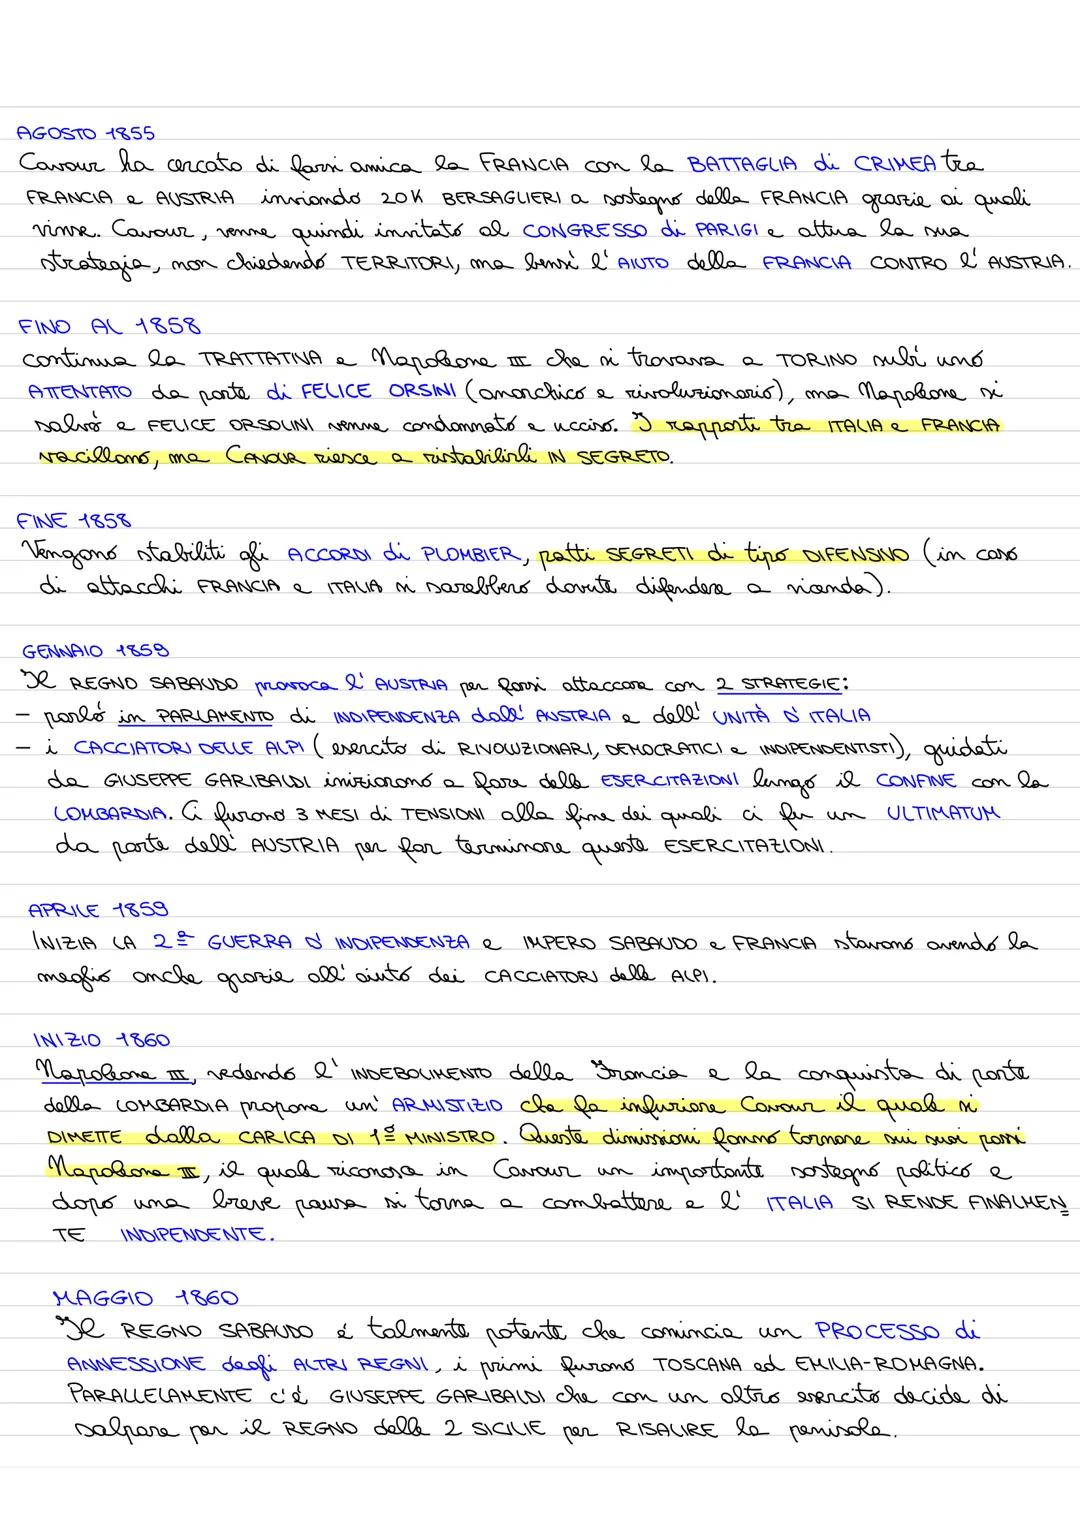 AGOSTO 1855
Cavour ha cercato di farsi amica la FRANCIA con la BATTAGLIA di CRIMEA tra
FRANCIA e AUSTRIA inviando 20K BERSAGLIERI a sostegno della FRANCIA grazie ai quali
vinse. Cavour, venne quindi invitato al CONGRESSO di PARIGI e attua la sua
strategia, non chiedendo TERRITORI, ma bensì l'AIUTO della FRANCIA CONTRO l'AUSTRIA.
FINO AL 1858
continua la TRATTATIVA e Napoleone III che si trovava a TORINO subì uno
ATTENTATO da parte di FELICE ORSINI (anarchico e rivoluzionario), ma Napoleone si
salvò e FELICE ORSOLINI venne condannato e ucciso. I rapporti tra ITALIA e FRANCIA
vacillano, ma CAVOUR riesce a ristabilirli IN SEGRETO.
FINE 1858
Vengono stabiliti gli ACCORDI di PLOMBIER, patti SEGRETI di tipo DIFENSIVO (in caso
di attacchi FRANCIA e ITALIA si sarebbero dovute difendere a vicenda).
GENNAIO 1859
Il REGNO SABAUDO provoca l'AUSTRIA per farsi attaccare con 2 STRATEGIE:
- parlò in PARLAMENTO di INDIPENDENZA dall'AUSTRIA e dell'UNITÀ D'ITALIA
- i CACCIATORI DELLE ALPI (esercito di RIVOLUZIONARI, DEMOCRATICI e INDIPENDENTISTI), guidati
da GIUSEPPE GARIBALDI iniziarono a fare delle ESERCITAZIONI lungo il CONFINE con la
LOMBARDIA. Ci furono 3 MESI di TENSIONI alla fine dei quali ci fu un ULTIMATUM
da parte dell'AUSTRIA per far terminare queste ESERCITAZIONI.
APRILE 1859
INIZIA LA 2ª GUERRA D'INDIPENDENZA e IMPERO SABAUDO e FRANCIA stavano avendo la
meglio anche grazie all'aiuto dei CACCIATORI delle ALPI.
INIZIO 1860
Napoleone III, vedendo l'INDEBOLIMENTO della Francia e la conquista di parte
della LOMBARDIA propone un'ARMISTIZIO che fa infuriare Cavour il quale si
DIMETTE dalla CARICA DI 1º MINISTRO. Queste dimissioni fanno tornare sui suoi passi
Napoleone III, il quale riconosce in Cavour un importante sostegno politico e
dopo una breve pausa si torna a combattere e l'ITALIA SI RENDE FINALMEN=
TE INDIPENDENTE.
MAGGIO 1860
Il REGNO SABAUDO é talmente potente che comincia un PROCESSO di
ANNESSIONE degli ALTRI REGNI, i primi furono TOSCANA ed EMILIA-ROMAGNA.
PARALLELAMENTE c'é GIUSEPPE GARIBALDI che con un altro esercito decide di
salpare per il REGNO delle 2 SICILIE per RISALIRE la penisola.